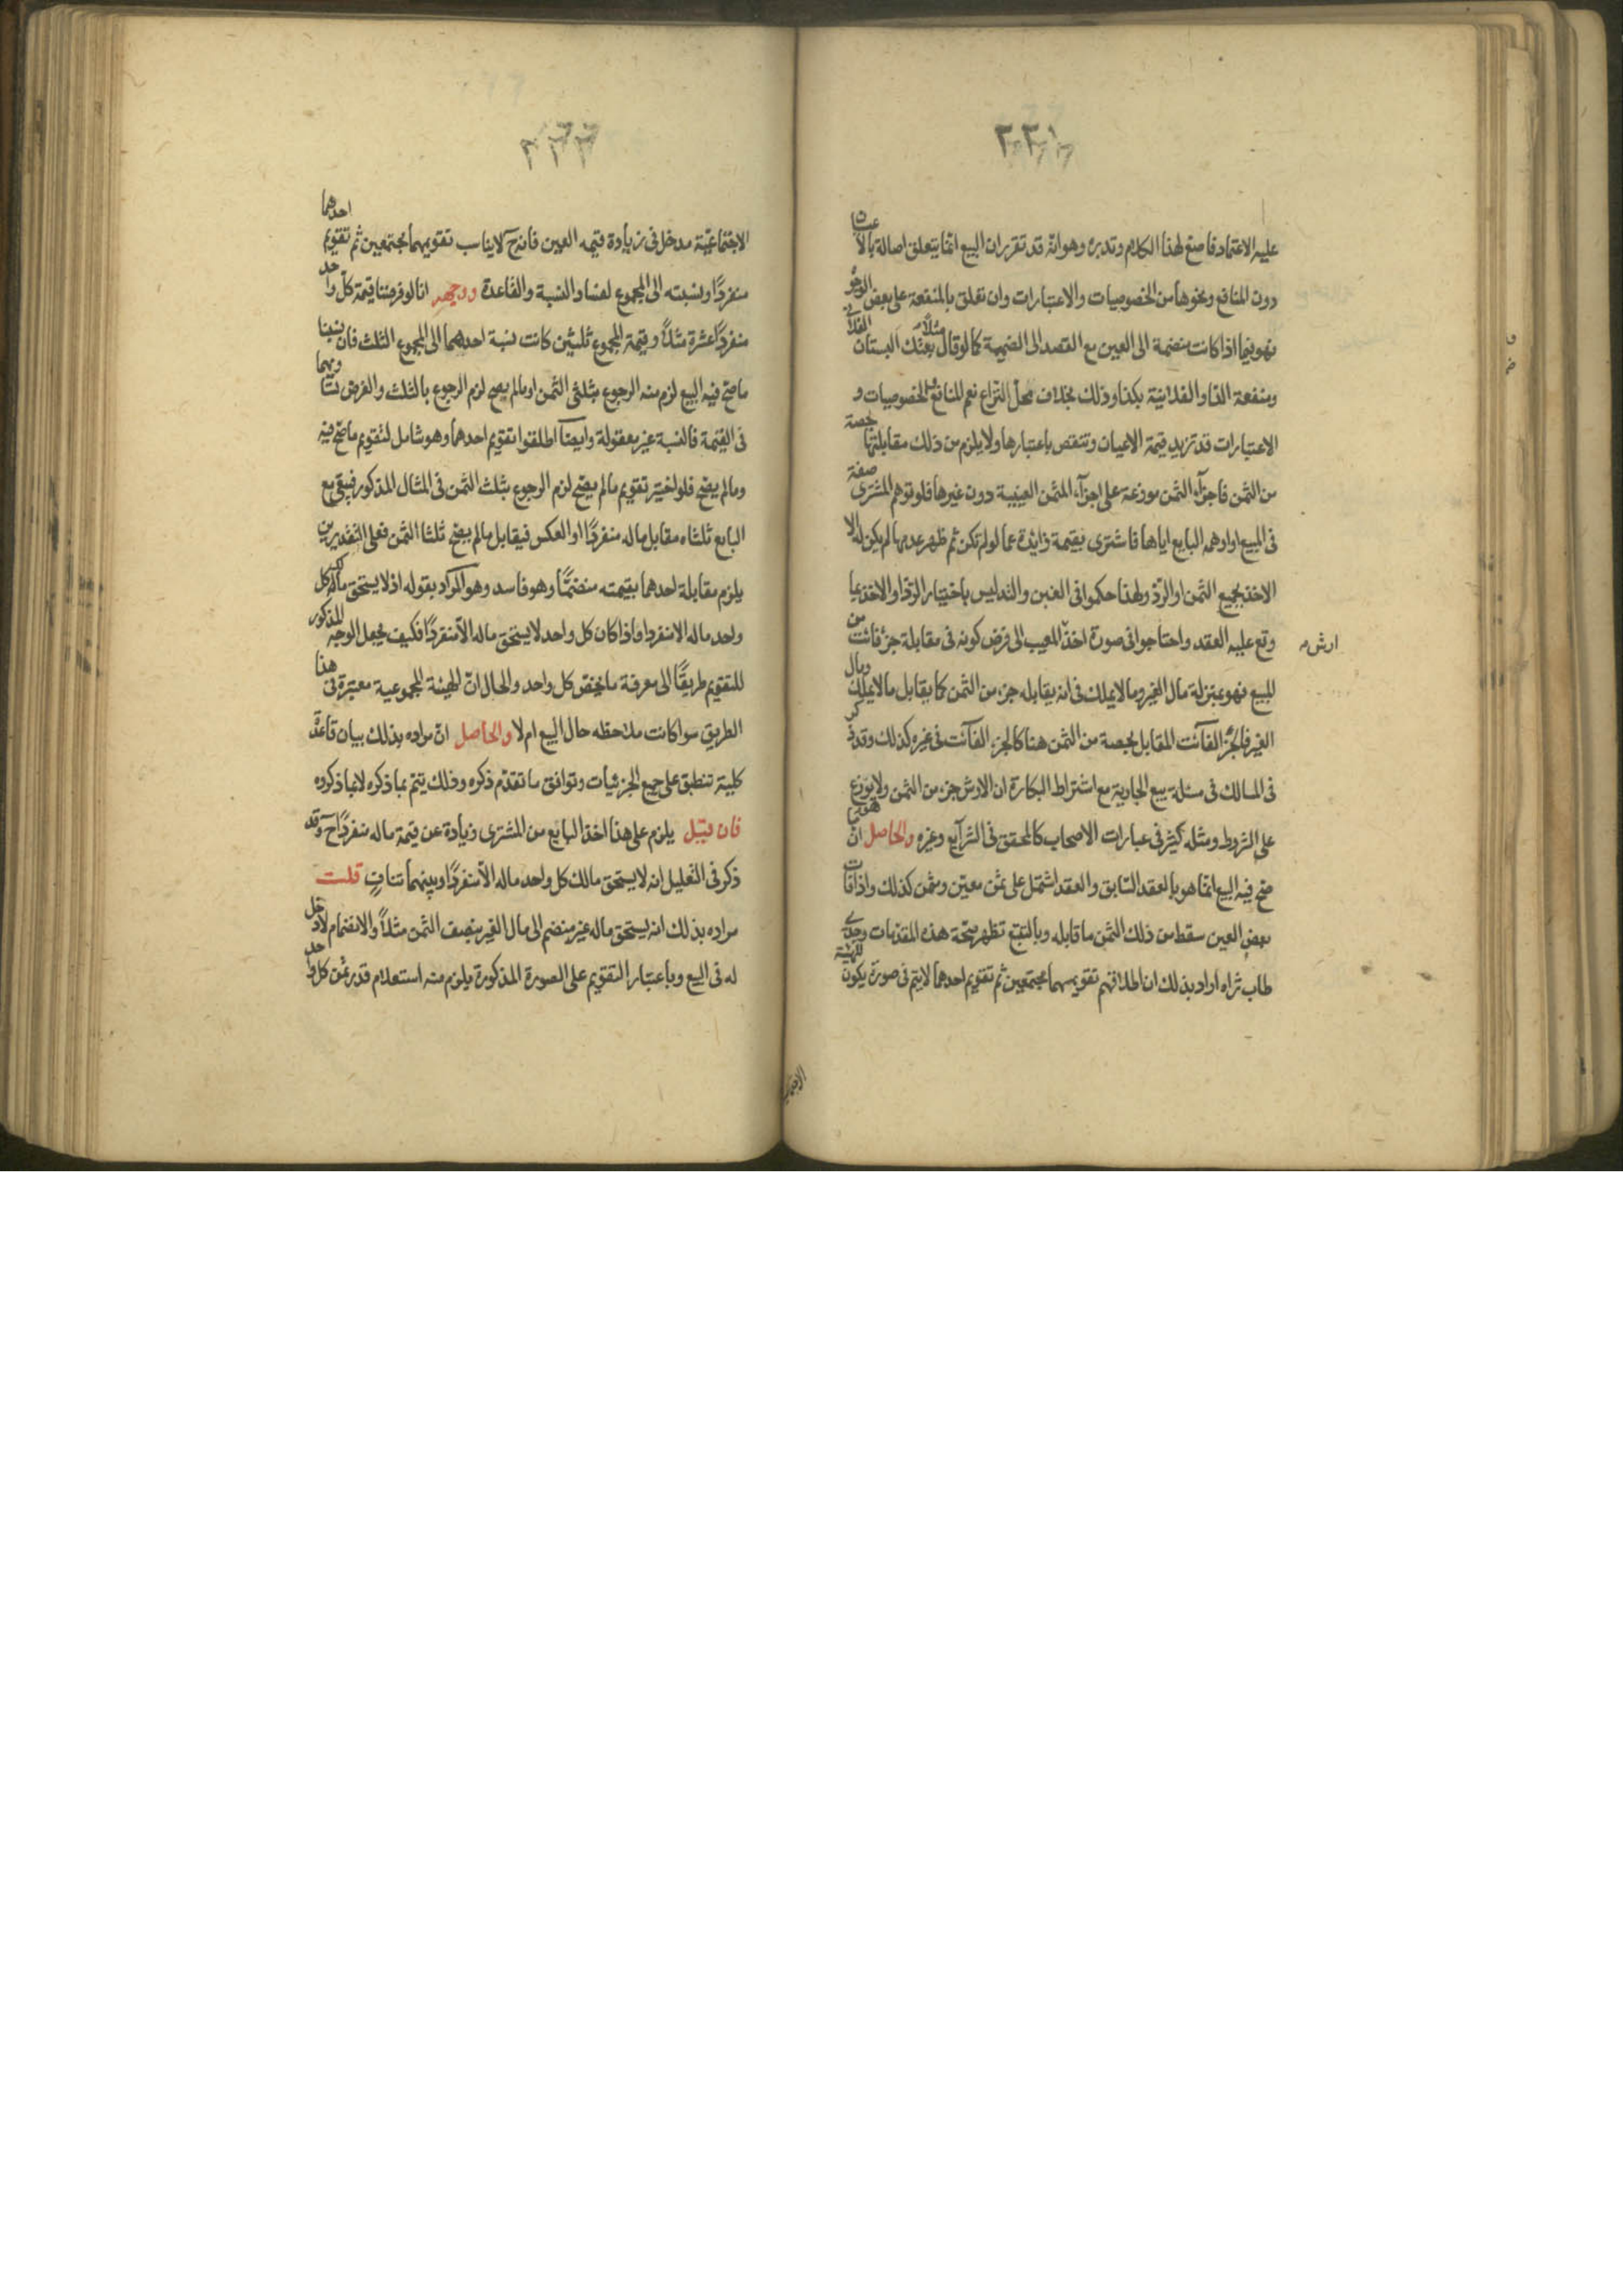 ٢٢١
عليه الاعتماد فاصنع لهذا الكلام وتدبره وهو انه قد تقرر ان البيع انما يتعلق اصالة بالاعيان
دون المنافع ونحوها من الخصوصيات والاعتبارات وان تعلق بالمنفعة على بعض الوجوه
فهو فيما اذا كانت منضمة الى العين مع القصد الى الضميمة كما لو قال مثلا بعتك البستان الفلاني
ومنفعة الدار الفلانية بكذا وذلك بخلاف محل النزاع نعم للمنافع والخصوصيات و
الاعتبارات قد تزيد قيمة الاعيان وتنقص باعتبارها ولا يلزم من ذلك مقابلتها بحصة
من الثمن فاجزاء الثمن موزعة على اجزاء المثمن العينية دون غيرها فلو توهم المشترى صفة
فى المبيع او اوهمه البايع اياها فاشترى بقيمة زايدة عما لو لم تكن ثم ظهر عدمها لم يكن له الا
الاخذ بجميع الثمن او الرد ولهذا حكموا فى الغبن والتدليس باختيار الرد او الاخذ بما
وقع عليه العقد واحتاجوا فى صورة اخذ المعيب الى فرض كونه فى مقابلة جزء فائت من
ارش
المبيع فهو بمنزلة مال الغير وما لا يملك فى انه يقابله جزء من الثمن كما يقابل ما لا يملك ومال
الغير فالجزء الفائت المقابل بحصة من الثمن هنا كالجزء الفائت فى غيره كذلك وقد ذكر
فى المسالك فى مسئلة بيع الجارية مع اشتراط البكارة ان الارش جزء من الثمن ولا يوزع
على الشروط ومثله كثير فى عبارات الاصحاب كالمحقق فى الشرايع وغيره والحاصل ان
صح فيه البيع انما هو بالعقد السابق والعقد اشتمل على ثمن معين ومثمن كذلك واذا فات
بعض العين سقط من ذلك الثمن ما قابله وبالتتبع تظهر صحة هذه المقدمات
طاب ثراه اراد بذلك ان اطلاقهم تقويمهما مجتمعين ثم تقويم احدهما لا يتم فى صورة يكون للهيئة
الاجتماعية
٢٢٢
الاجتماعية مدخل فى زيادة قيمه العين فانه ح لا يناسب تقويمهما مجتمعين ثم تقويم احدهما
منفردا ونسبته الى المجموع لفساد النسبة والقاعدة ووجهه انا لو فرضنا قيمة كل واحد
منفردا عشرة مثلا وقيمة المجموع ثلثين كانت نسبة احدهما الى المجموع الثلث فان نسبنا
ما صح فيه البيع لزم منه الرجوع بثلثى الثمن او ما لم يصح لزم الرجوع بالثلث والفرض تساويهما
فى القيمة فالنسبة غير معقولة وايضا اطلقوا تقويم احدهما وهو شامل لتقويم ما صح فيه
وما لم يصح فلو اختير تقويم ما لم يصح لزم الرجوع بثلث الثمن فى المثال المذكور فيبقى مع
البايع ثلثاه مقابل ماله منفردا او العكس فيقابل ما لم يصح ثلثا الثمن فعلى التقديرين
يلزم مقابلة احدهما بقيمته منضما وهو فاسد وهو المراد بقوله اذ لا يستحق مالك كل
واحد ماله الا منفردا واذا كان كل واحد لا يستحق ماله الا منفردا فكيف يجعل الوجه المذكور
للتقويم طريقا الى معرفة ما يخص كل واحد والحال ان الهيئة المجموعية معتبرة فى هذا
الطريق سوا كانت ملاحظه حال البيع ام لا والحاصل ان مراده بذلك بيان قاعدة
كلية تنطبق على جميع الجزئيات وتوافق ما تقدم ذكره وذلك يتم بما ذكره لا بما ذكروه
فان قيل يلزم على هذا اخذ البايع من المشترى زيادة عن قيمة ماله منفردا ح وقد
ذكر فى التعليل انه لا يستحق مالك كل واحد ماله الا منفردا وبينهما تناف قلت
مراده بذلك انه يستحق ماله غير منضم الى مال الغير بنصف الثمن مثلا والانضمام لا دخل
له فى البيع وباعتبار التقويم على الصورة المذكورة يلزم منه استعلام قدر ثمن كل واحد